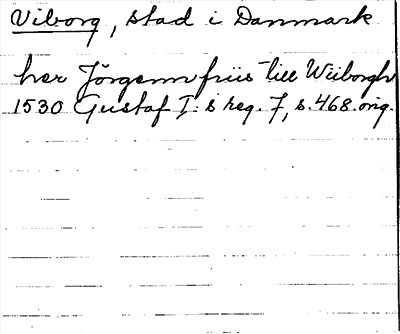 Viborg, stad i Danmark
her Jörgenn friis till Wiiborgh
1530 Gustaf I:s reg. 7, s. 468. orig.